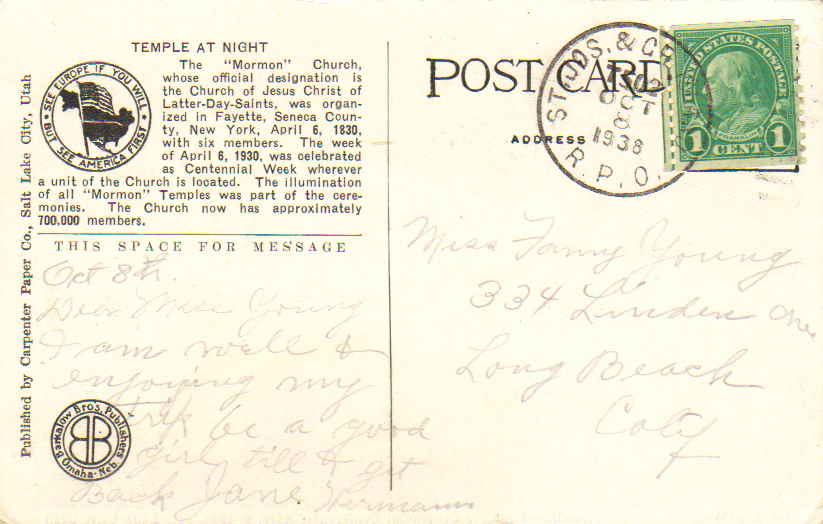 TEMPLE AT NIGHT
The "Mormon" Church,
whose official designation is
the Church of Jesus Christ of
Latter-Day-Saints, was organ-
ized in Fayette, Seneca Coun-
ty, New York, April 6, 1830,
with six members. The week
of April 6, 1930, was celebrated
as Centennial Week wherever
a unit of the Church is located. The illumination
of all "Mormon" Temples was part of the cere-
monies. The Church now has approximately
700,000 members.
SEE EUROPE IF YOU WILL
BUT SEE AMERICA FIRST
THIS SPACE FOR MESSAGE
Oct 8th.
Dear Miss Young
I am well &
enjoying my
Trip be a good
girl till I get
Back Jane Hermann
Barkalow Bros. Publishers
Omaha-Neb.
BB
Published by Carpenter Paper Co., Salt Lake City, Utah
POST CARD
ADDRESS
OCT
8
1938
R.P.O.
UNITED STATES POSTAGE
FRANKLIN
1 CENT 1
Miss Fanny Young
334 Linden Ave
Long Beach
Calif